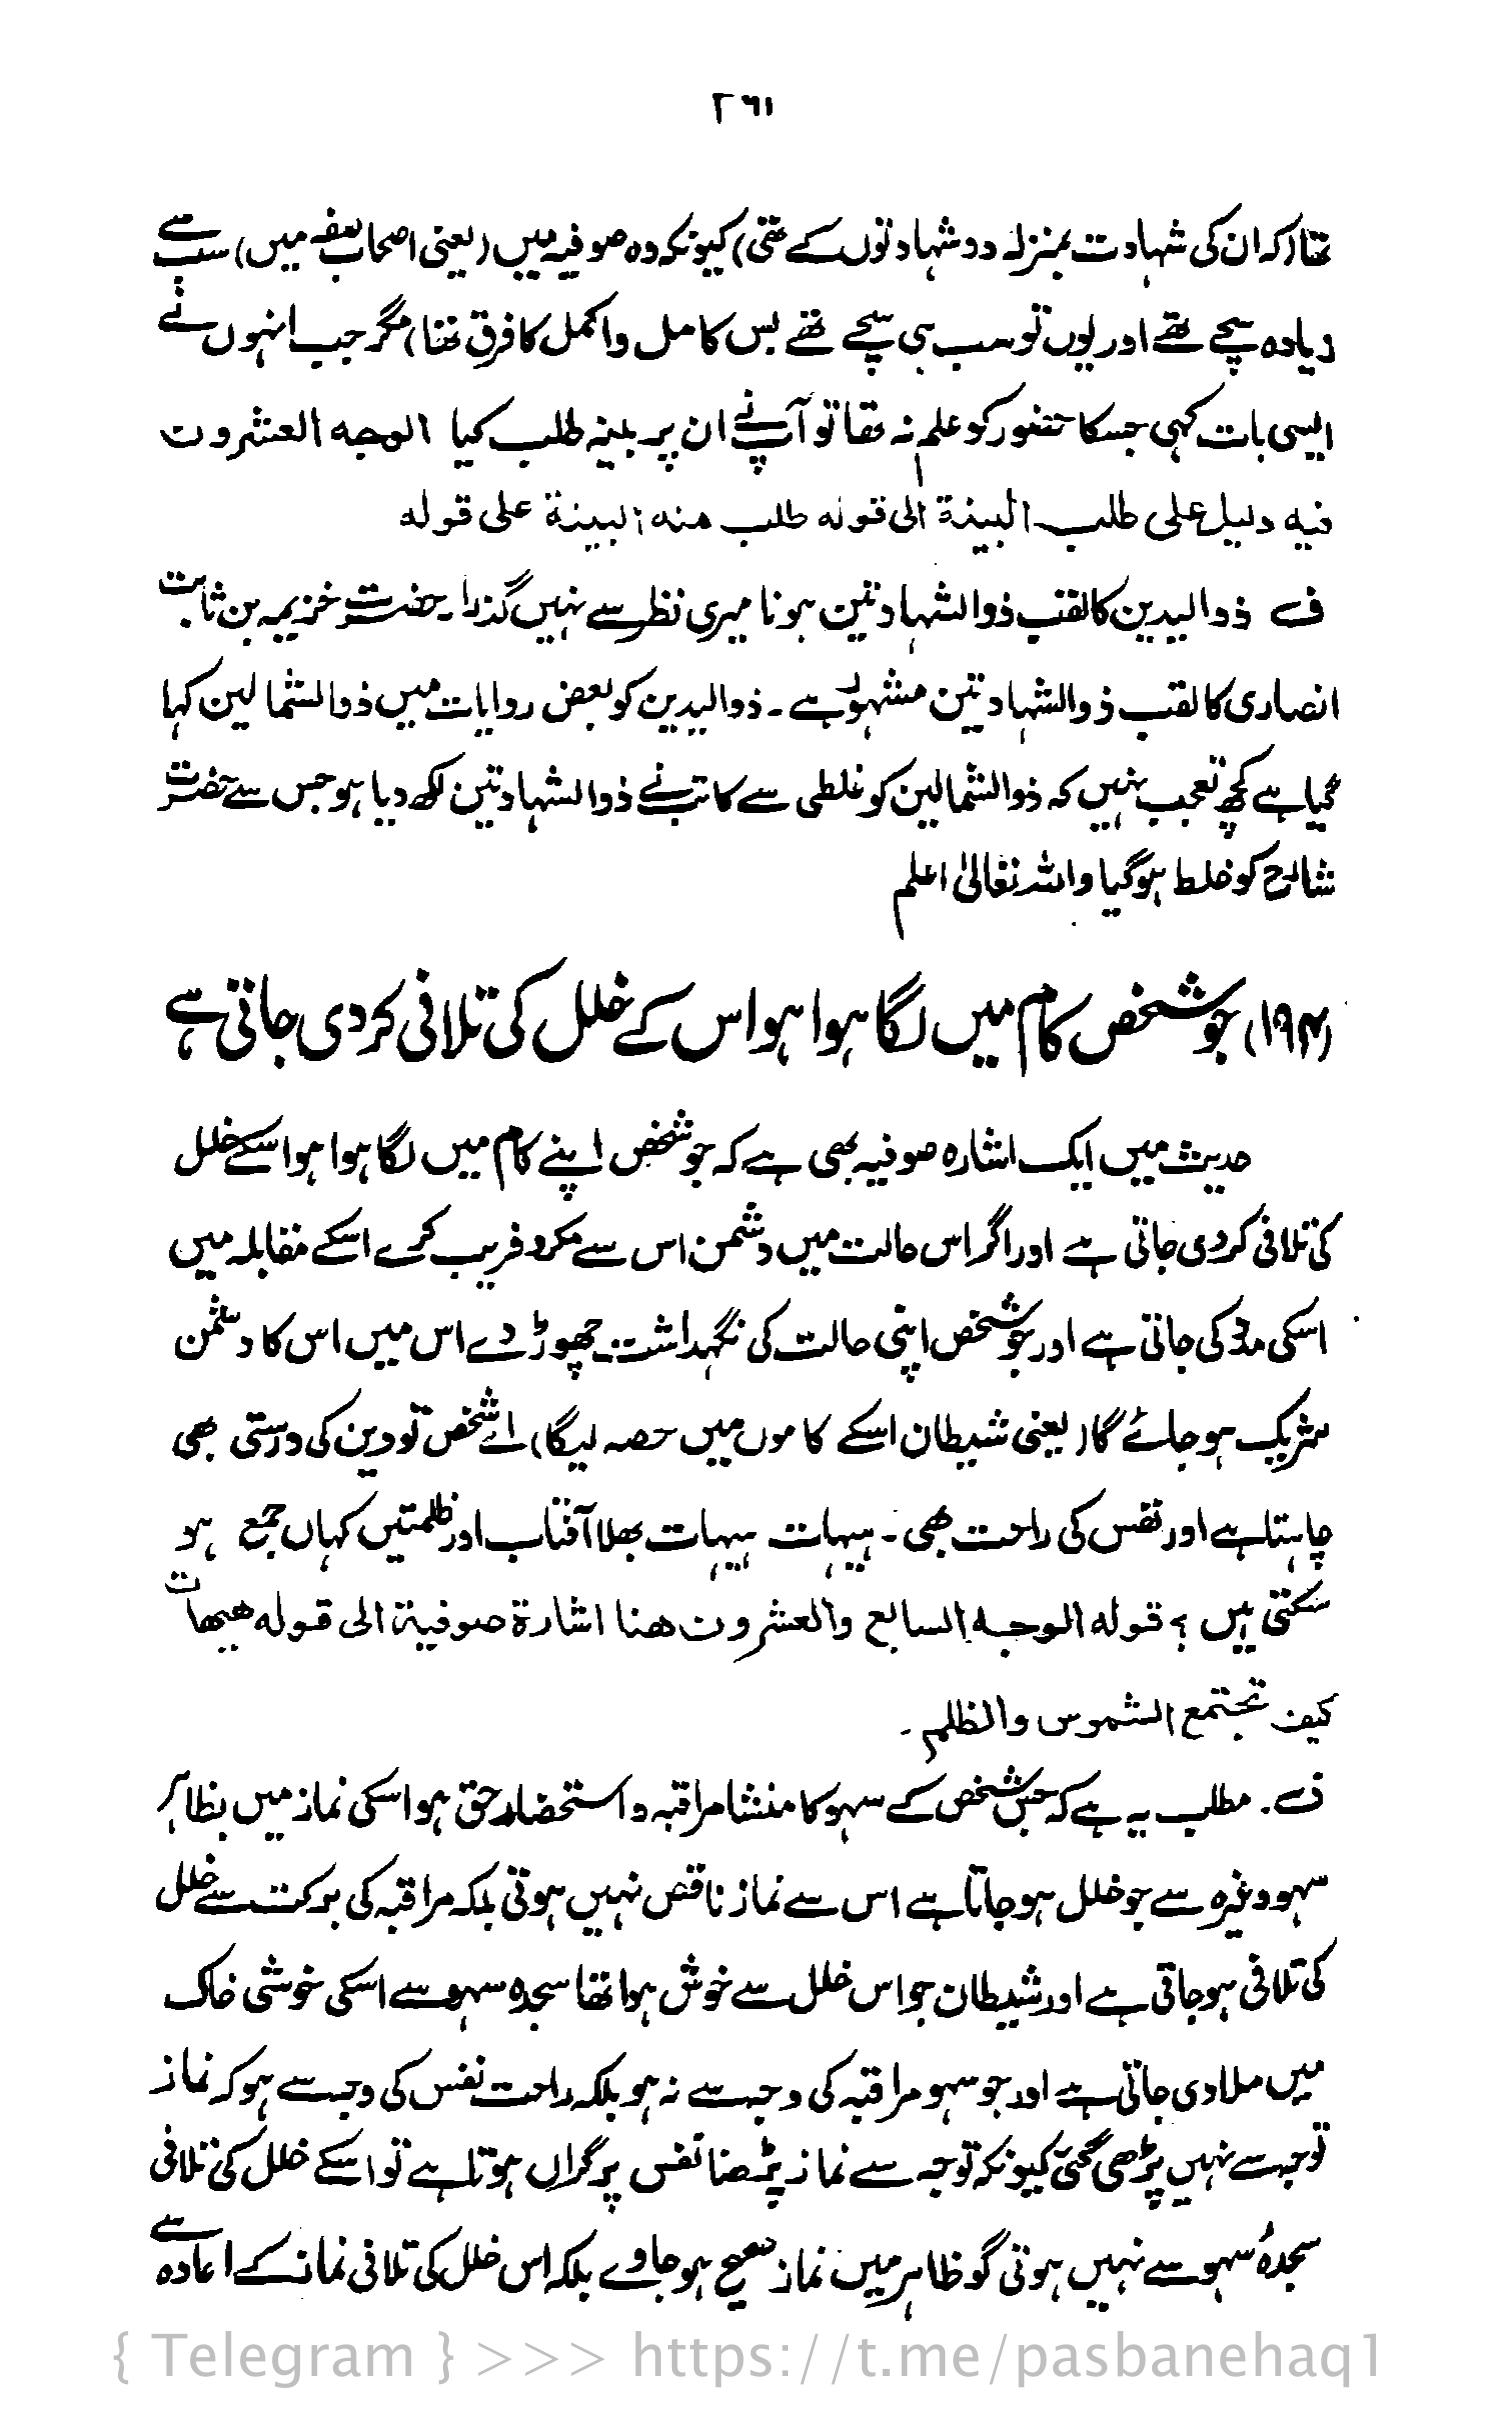 ۲۶۱
تھا (کہ ان کی شہادت بمنزلہ دو شہادتوں کے تھی) کیونکہ وہ صوفیہ میں (یعنی اصحاب صفہ میں) سب سے
زیادہ سچے تھے اور یوں تو سب ہی سچے تھے بس کامل واکمل کا فرق تھا) مگر جب انہوں نے
ایسی بات کہی جسکا حضور کو علم نہ تھا تو آپ نے ان پر بینہ طلب کیا الوجہ العشرون
فیہ دلیل علی طلب البینة الی قولہ طلب منہ البینة علی قولہ
ف ذوالیدین کا لقب ذوالشہادتین ہونا میری نظر سے نہیں گذرا۔ حضرت خزیمہ بن ثابت
انصاری کا لقب ذوالشہادتین مشہور ہے۔ ذوالیدین کو بعض روایات میں ذوالشمالین کہا
گیا ہے کچھ تعجب نہیں کہ ذوالشمالین کو غلطی سے کاتب نے ذوالشہادتین لکھ دیا ہو جس سے حضرت
شارح کو خلط ہوگیا واللہ تعالیٰ اعلم
(۱۹۴) جو شخص کام میں لگا ہوا ہو اس کے خلل کی تلافی کردی جاتی ہے
حدیث میں ایک اشارہ صوفیہ بھی ہے کہ جو شخص اپنے کام میں لگا ہوا ہو اسکے خلل
کی تلافی کردی جاتی ہے اور اگر اس حالت میں دشمن اس سے مکر و فریب کرے اسکے مقابلہ میں
اسکی مدد کی جاتی ہے اور جو شخص اپنی حالت کی نگہداشت چھوڑ دے اس میں اس کا دشمن
شریک ہو جائے گا (یعنی شیطان اسکے کاموں میں حصہ لیگا) اے شخص تو دین کی درستی بھی
چاہتا ہے اور نفس کی راحت بھی۔ ہیہات ہیہات بھلا آفتاب اور ظلمتیں کہاں جمع ہو
سکتی ہیں ؟ قولہ الوجہ السابع والعشرون ھنا اشارة صوفیة الی قولہ ھیھات
کیف تجتمع الشموس والظلم۔
ف۔ مطلب یہ ہے کہ جس شخص کے سہو کا منشا مراقبہ و استحضار حق ہو اسکی نماز میں بظاہر
سہو وغیرہ سے جو خلل ہو جاتا ہے اس سے نماز ناقص نہیں ہوتی بلکہ مراقبہ کی برکت سے خلل
کی تلافی ہو جاتی ہے اور شیطان جو اس خلل سے خوش ہوا تھا سجدہ سہو سے اسکی خوشی خاک
میں ملا دی جاتی ہے اور جو سہو مراقبہ کی وجہ سے نہ ہو بلکہ راحت نفس کی وجہ سے ہو کہ نماز
توجہ سے نہیں پڑھی گئی کیونکہ توجہ سے نماز پڑھنا نفس پر گراں ہوتا ہے تو اسکے خلل کی تلافی
سجدۂ سہو سے نہیں ہوتی گو ظاہر میں نماز صحیح ہو جاوے بلکہ اس خلل کی تلافی نماز کے اعادہ سے
{ Telegram } >>> https://t.me/pasbanehaq1